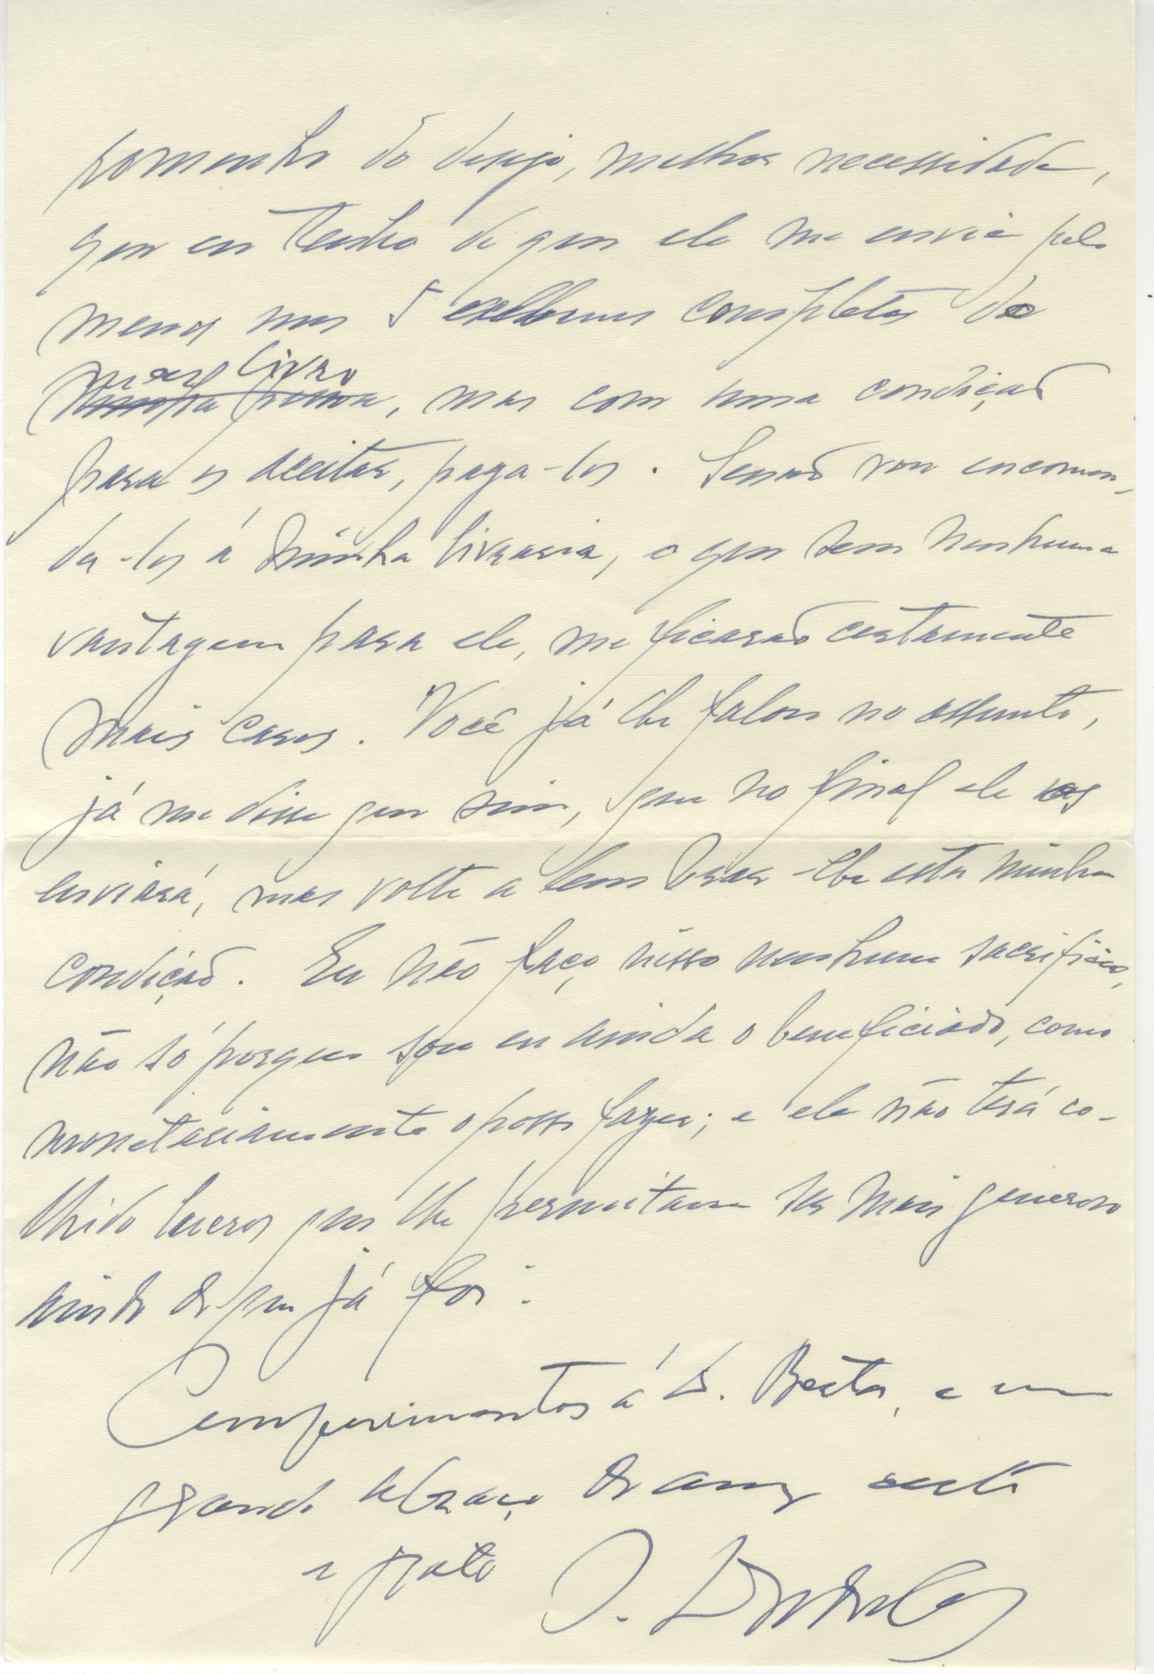 somenho do desejo, melhor necessidade,
que eu tenho de que ele me envie pelo
menos uns 5 exemplares completos do
meu livro
minha prosa, mas com uma condição
para os aceitar, paga-los. Senão vou encomen-
da-los á minha livraria, o que sem nenhuma
vantagem para ele, me ficarão certamente
mais caros. Você já lhe falou no assunto,
já me disse que sim, que no final ele os
enviará, mas volte a lembrar-lhe esta minha
condição. Eu não faço nisso nenhum sacrificio,
não só porque sou eu ainda o beneficiado, como
monetariamente o posso fazer; e ele não terá co-
lhido lucros que lhe permitam ser mais generoso
ainda do que já foi.
Cumprimentos á D. Berta, e um
grande abraço do amº certo
e grato
J.